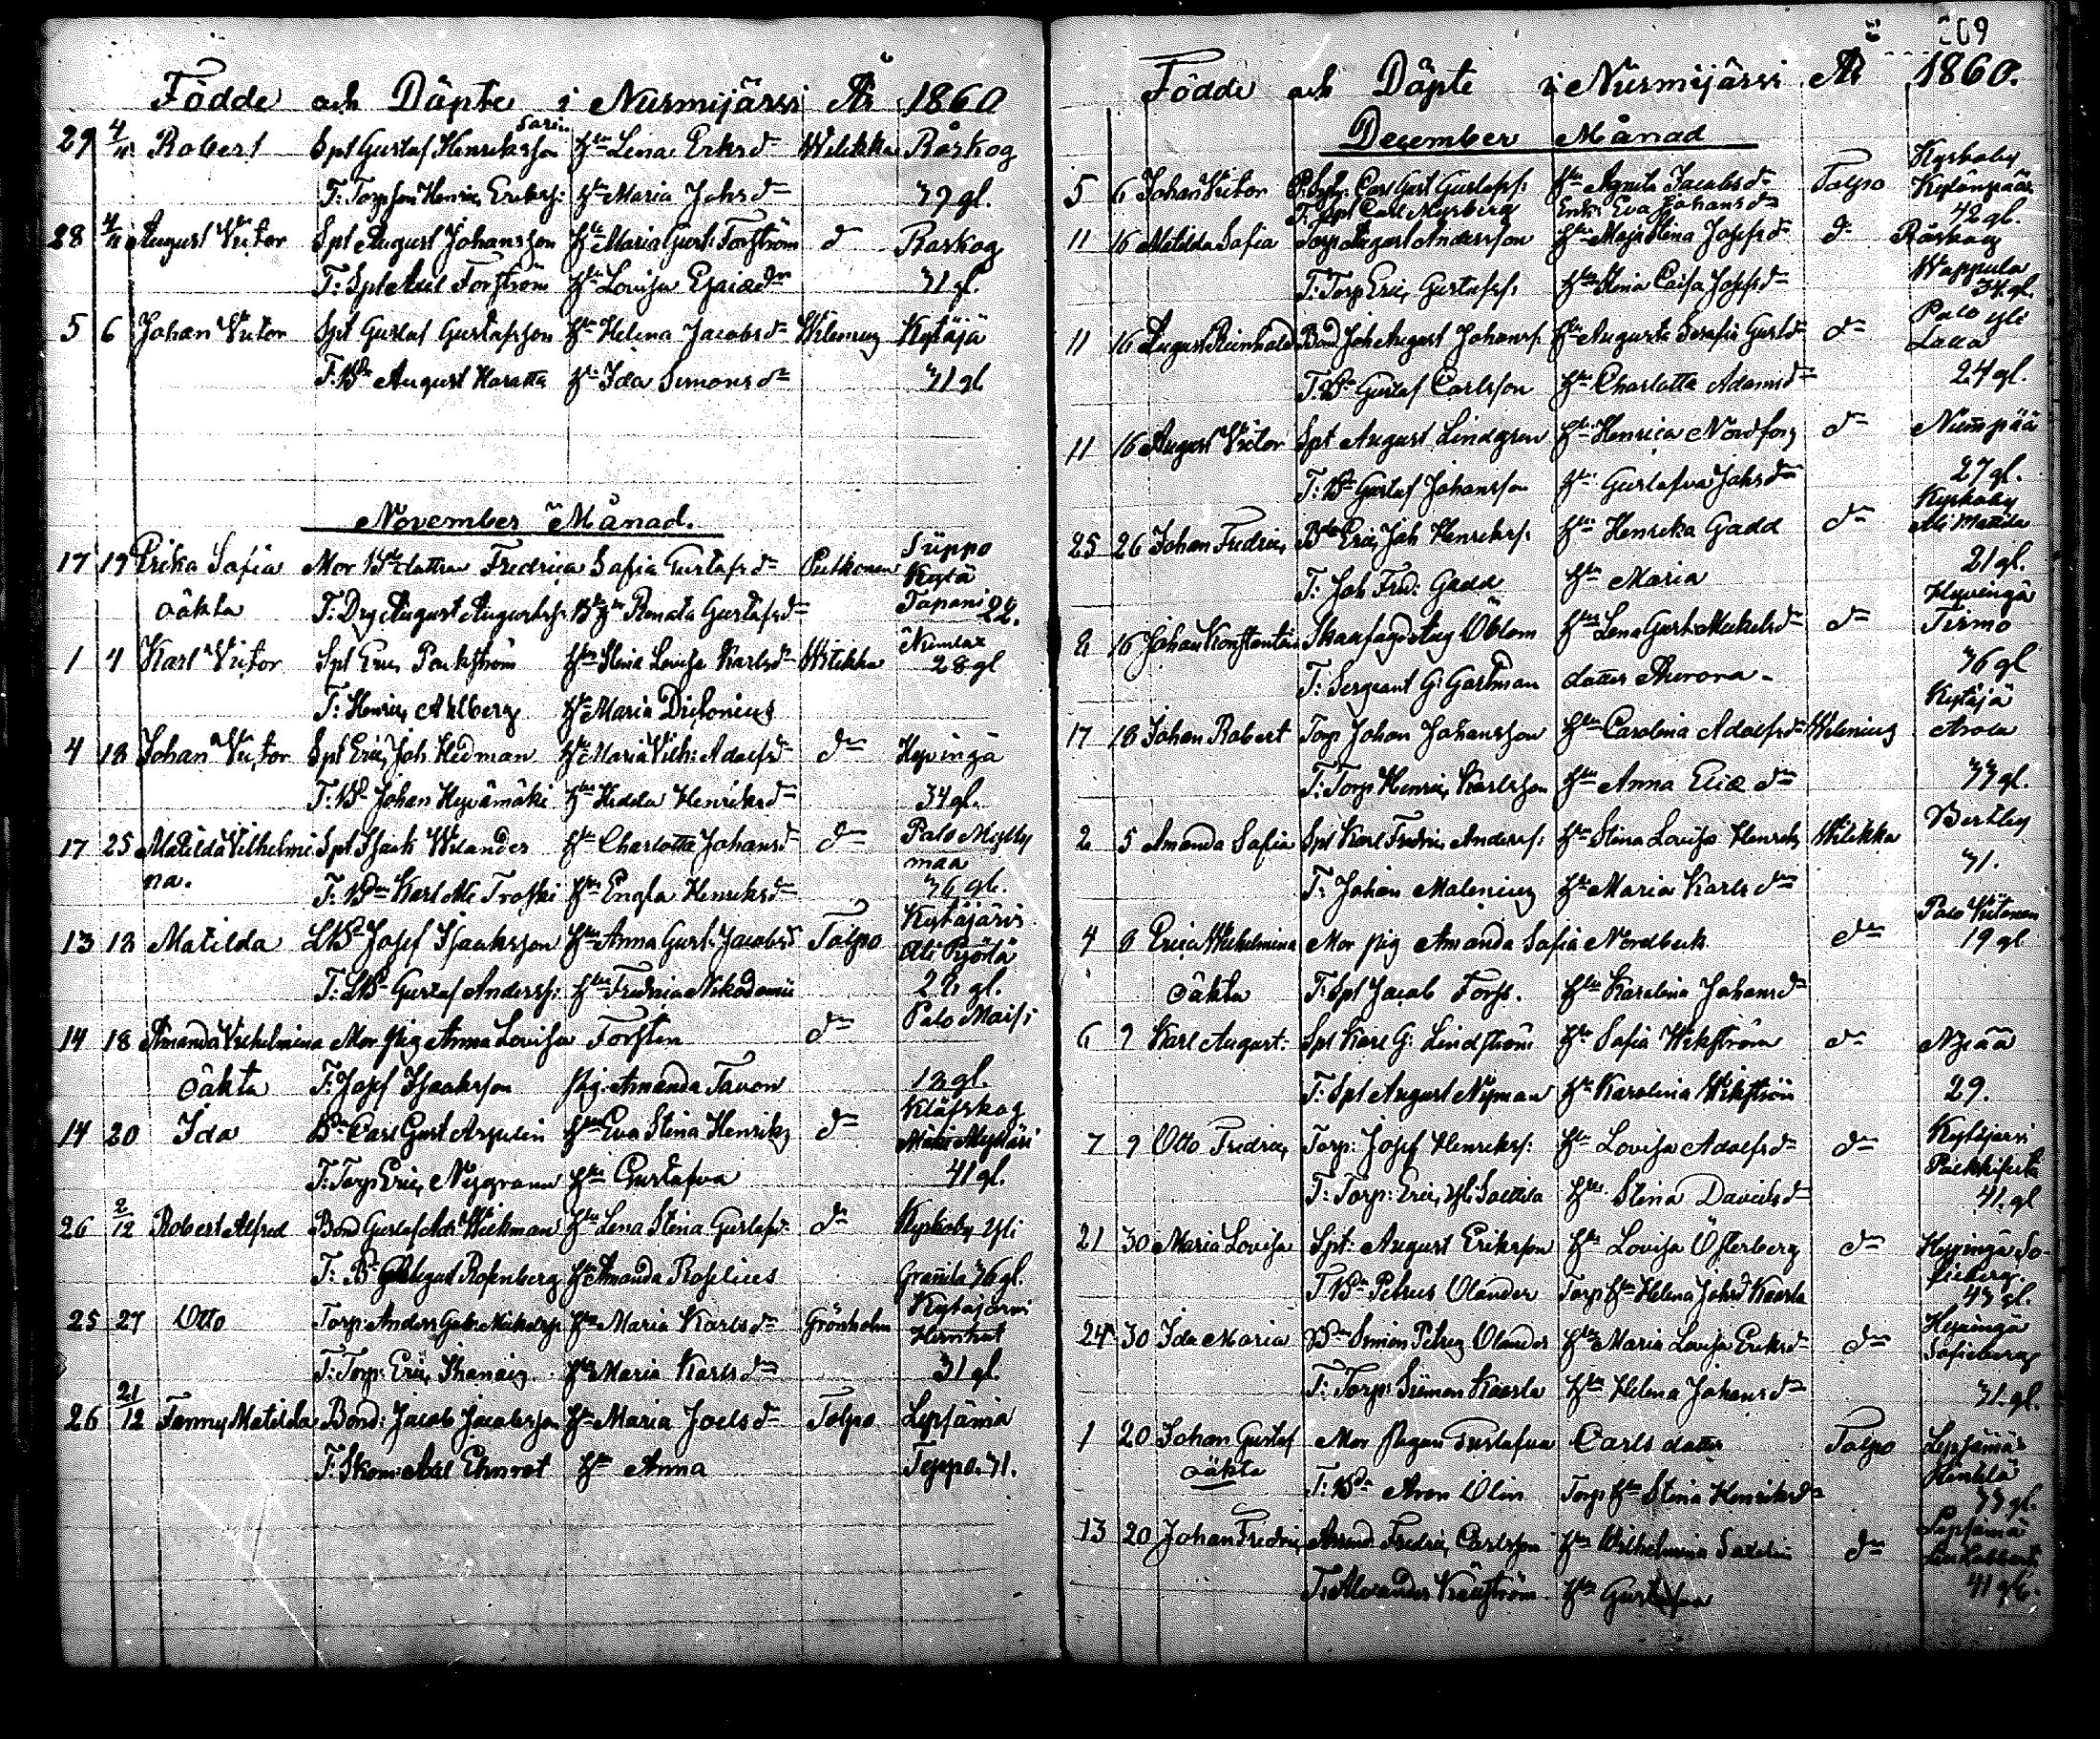 Födde och Döpte i Nurmijärvi År 1860
29 4/11 Robert Spt Gustaf Henriksson Sarin Hu Lena Eriksdr Wilikka Röskog
T: Torpson Henric Eriksss: Hu Maria Johsdr 39 gl.
28 4/11 August Victor Spt August Johansson Hu Maria Gust: Forström do Röskog
T: Spt Axel Forström Hu Lovisa Esaiædr 31 gl.
5 6 Johan Victor Spt Gustaf Gustafsson Hu Helena Jacobsdr Wilenius Kytäjä
T: Bd August Haratta Hu Ida Simonsdr 31 gl
November Månad.
17 19 Erika Sofia Mor Bddottren Fredrica Sofia Gustafsdr Putkonen Suppo Kytä
oäkta T: Drg August Augustss: Renata Gustafsdr Tapani 22.
1 4 Karl Victor Spt Eric Parkström Hu Stina Lovisa Karlsdr Wilikka 28 gl
T: Henric Ahlberg Hu Maria Dielonius
4 18 Johan Victor Spt Eric Joh Hedman Hu Maria Vilh: Adolfsdr do Hyvingä
T: Bd Johan Hyvämäki Hu Hedda Henriksdr 34 gl.
17 25 Matilda Vilhelmi Spt Isack Welander Hu Charlotta Johansdr do Palo Mylly
na. maa
T: Bd Karl Hu Engla Henriksdr 36 gl.
13 18 Matilda LBd Josef Isaaksson Hu Anna Gust: Jacobsd Tolpo Kytäjärvi Ali Pyörlä
T: LBd Gustaf Anderss: Hu Fredrica Nikodemii 28 gl.
14 18 Amanda Vilhelmina Mor Pig Anna Lovisa Forstén do Palo Maisi
oäkta T: Josef Isaaksson Pig: Amanda Tavon 18 gl.
14 20 Ida Bd Carl Gust Arpelin Hu Eva Stina Henriks do Kläfskog Mylläri
T: Torp Eric Nygrann Hu Gustafva 41 gl.
26 2/12 Robert Alfred Bond Gustaf Wickman Hu Lena Stina Gustafsdr do Kyrkoby Yli
T: Bd Rosenberg Hu Amanda Roselius Granila 36 gl.
25 27 Otto Torp Anders Gab: Mickelss Hu Maria Karlsdr Grönholm Kytäjärvi
T: Torp: Eric Hu Maria Karlsdr 31 gl.
26 21/12 Fanny Matilda Bond: Jacob Jacobsson Hu Maria Joelsdr Tolpo Lepsämä
T: Skom: Axel Ehnrot Hu Anna Teppo. 31.
209
Födde och Döpte i Nurmijärvi År 1860.
December Månad
5 6 Johan Victor Carl Gust Gustafss: Hu Agneta Jacobsdr Tolpo Kyrkoby Kylänpää
T: Spt Carl Myrberg Enk: Eva Johansdr 42 gl.
11 16 Matilda Sofia Torp August Andersson Hu Maja Stina Josefsdr do Röskog
T: Torp Eric Gustafss: Hu Stina Caisa Josefsdr Wappula 34 gl.
11 16 August Reinhold Bond Joh August Johanss: Hu Augusta Serafia Gustdr do Palo Yli
T: Bd Gustaf Carlsson Hu Charlotta Adamsdr 24 gl.
11 16 August Victor Spt August Lindgren Hu Henrica Nordfors do Numpää
T: Bd Gustaf Johansson Hu Gustafva Johsdr 27 gl.
25 26 Johan Fredric Bd Eric Joh Henrikss: Hu Henrika Gadd do Kyrkoby Ali Mattila
T: Joh Fred: Gadd Hu Maria 21 gl.
8 16 Johan Konstantin Aug Öblom Hu Lena Gust: Mickelsdr do Hyvingä Tirmo
T: Sergeant G: Gartman dotter Aurora. 36 gl
17 18 Johan Robert Torp Johan Johansson Hu Carolina Adolfsdr Wilenius Kytäjä Arola
T: Torp Henric Karlsson Hu Anna Ericædr 33 gl.
2 5 Amanda Sofia Spt Karl Fredric Anderss: Hu Stina Lovisa Henriks Wilikka Bertby
T: Johan Malenius Hu Maria Karlsdr 31.
4 8 Erica Wilhelmina Mor pig Amanda Sofia Nordbeck do Palo
oäkta T: Spt Jacob Forss. Hu Karolina Johansdr 19 gl
6 9 Karl August: Spt Karl G: Lindström Hu Sofia Wikström do
T: Spt August Nyman Hu Karolina Wikström 29.
7 9 Otto Fredric Torp: Josef Henrikss: Hu Lovisa Adolfsdr do Kytäjärvi
T: Torp: Eric Yli Soittila Hu Stina Davidsdr 41 gl
21 30 Maria Lovisa Spt: August Eriksson Hu Lovisa Österberg do Hyvingä So-
fieberg.
T: Bd Petrus Olander Torp Hu Helena Johsd Kaarla 43 gl.
24 30 Ida Maria Bd Simon Petrus Olander Hu Maria Lovisa Eriksdr do Hyvingä Sofieberg
T: Torp: Simon Kaarla Hu Helena Johansdr 31. gl.
1 20 Johan Gustaf Mor Pigan Gustafva Carlsdotter Tolpo Lepsämä
oäkta T: Bd Aron Olin Torp Hu Stina Henriksdr 33 gl.
13 20 Johan Fredric Arrend Fredric Carlsson Hu Wilhelmina do Lepsämä
T: Alexander Hu Gustafva 41 gl.